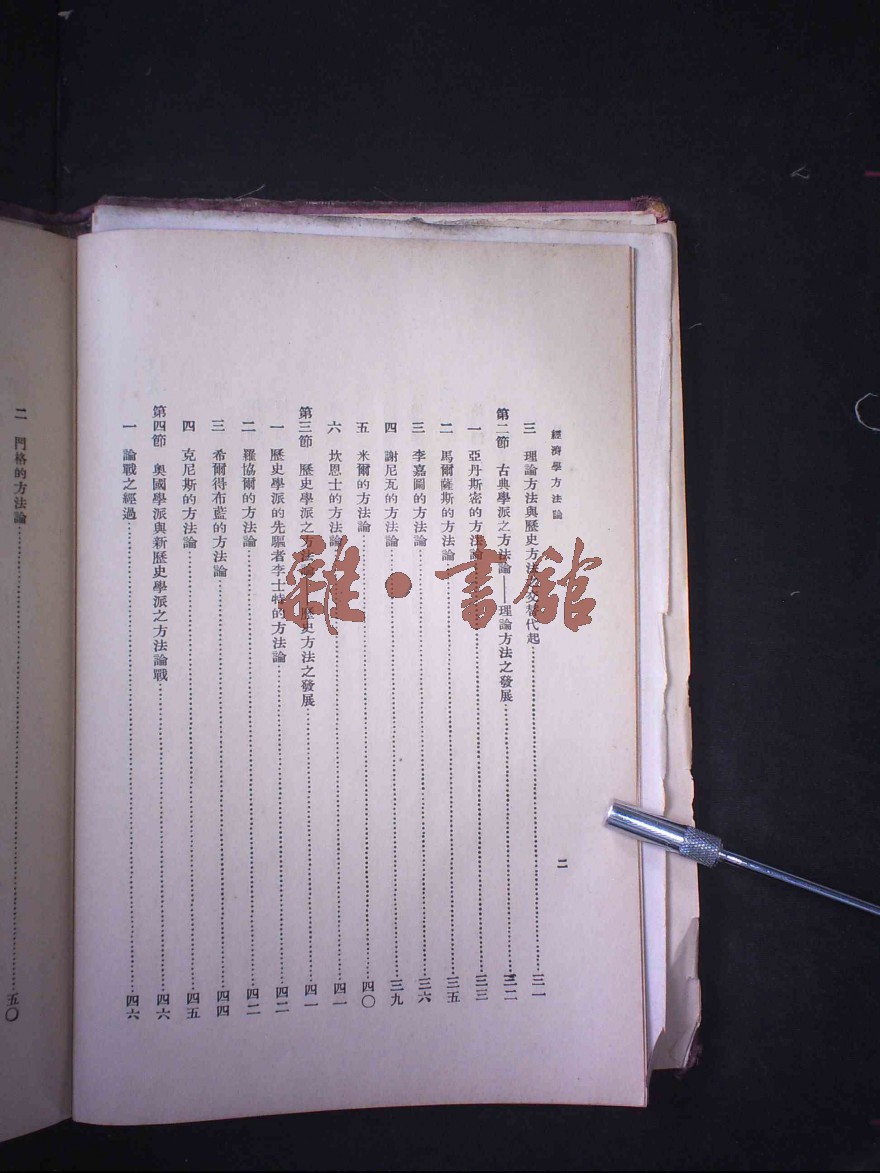 經濟學方法論
二
三 理論方法與歷史方法之交替代起……三一
第二節 古典學派之方法論——理論方法之發展……三二
一 亞丹斯密的方法論……三三
二 馬爾薩斯的方法論……三五
三 李嘉圖的方法論……三六
四 謝尼瓦的方法論……三九
五 米爾的方法論……四〇
六 坎恩士的方法論……四一
第三節 歷史學派之方法論——歷史方法之發展……四一
一 歷史學派的先驅者李士特的方法論……四二
二 羅協爾的方法論……四二
三 希爾得布藍的方法論……四四
四 克尼斯的方法論……四五
第四節 奧國學派與新歷史學派之方法論戰……四六
一 論戰之經過……四六
二 門格的方法論……五〇
雜·書館